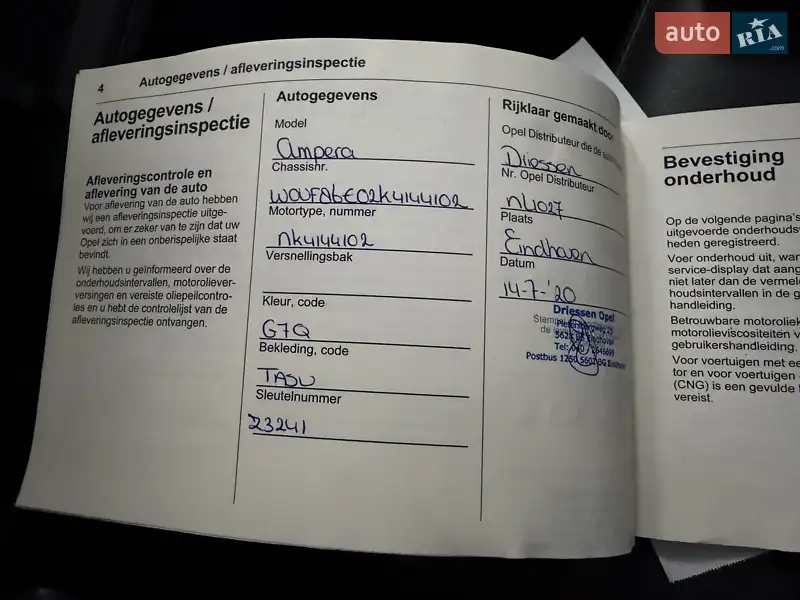 auto RIA.com
4 Autogegevens / afleveringsinspectie
Autogegevens /
afleveringsinspectie
Afleveringscontrole en
aflevering van de auto
Voor aflevering van de auto hebben
wij een afleveringsinspectie uitge-
voerd, om er zeker van te zijn dat uw
Opel zich in een onberispelijke staat
bevindt.
Wij hebben u geïnformeerd over de
onderhoudsintervallen, motoroliever-
versingen en vereiste oliepeilcontro-
les en u hebt de controlelijst van de
afleveringsinspectie ontvangen.
Autogegevens
Model
Ampera
Chassisnr.
W0VFA6E02K4144102
Motortype, nummer
NK4144102
Versnellingsbak
Kleur, code
G7Q
Bekleding, code
TASU
Sleutelnummer
23241
Rijklaar gemaakt door
Opel Distributeur die de
Driessen
Nr. Opel Distributeur
NL1027
Plaats
Eindhoven
Datum
14-7-'20
Driessen Opel
Stempel
de
Tel:
Postbus
Bevestiging
onderhoud
Op de volgende pagina's
uitgevoerde
heden geregistreerd.
Voer onderhoud uit,
service-display dat
niet later dan de
houdsintervallen in de
handleiding.
Betrouwbare
motorolieviscositeiten
gebruikershandleiding.
Voor voertuigen met
tor en voor voertuigen
(CNG) is een gevulde
vereist.